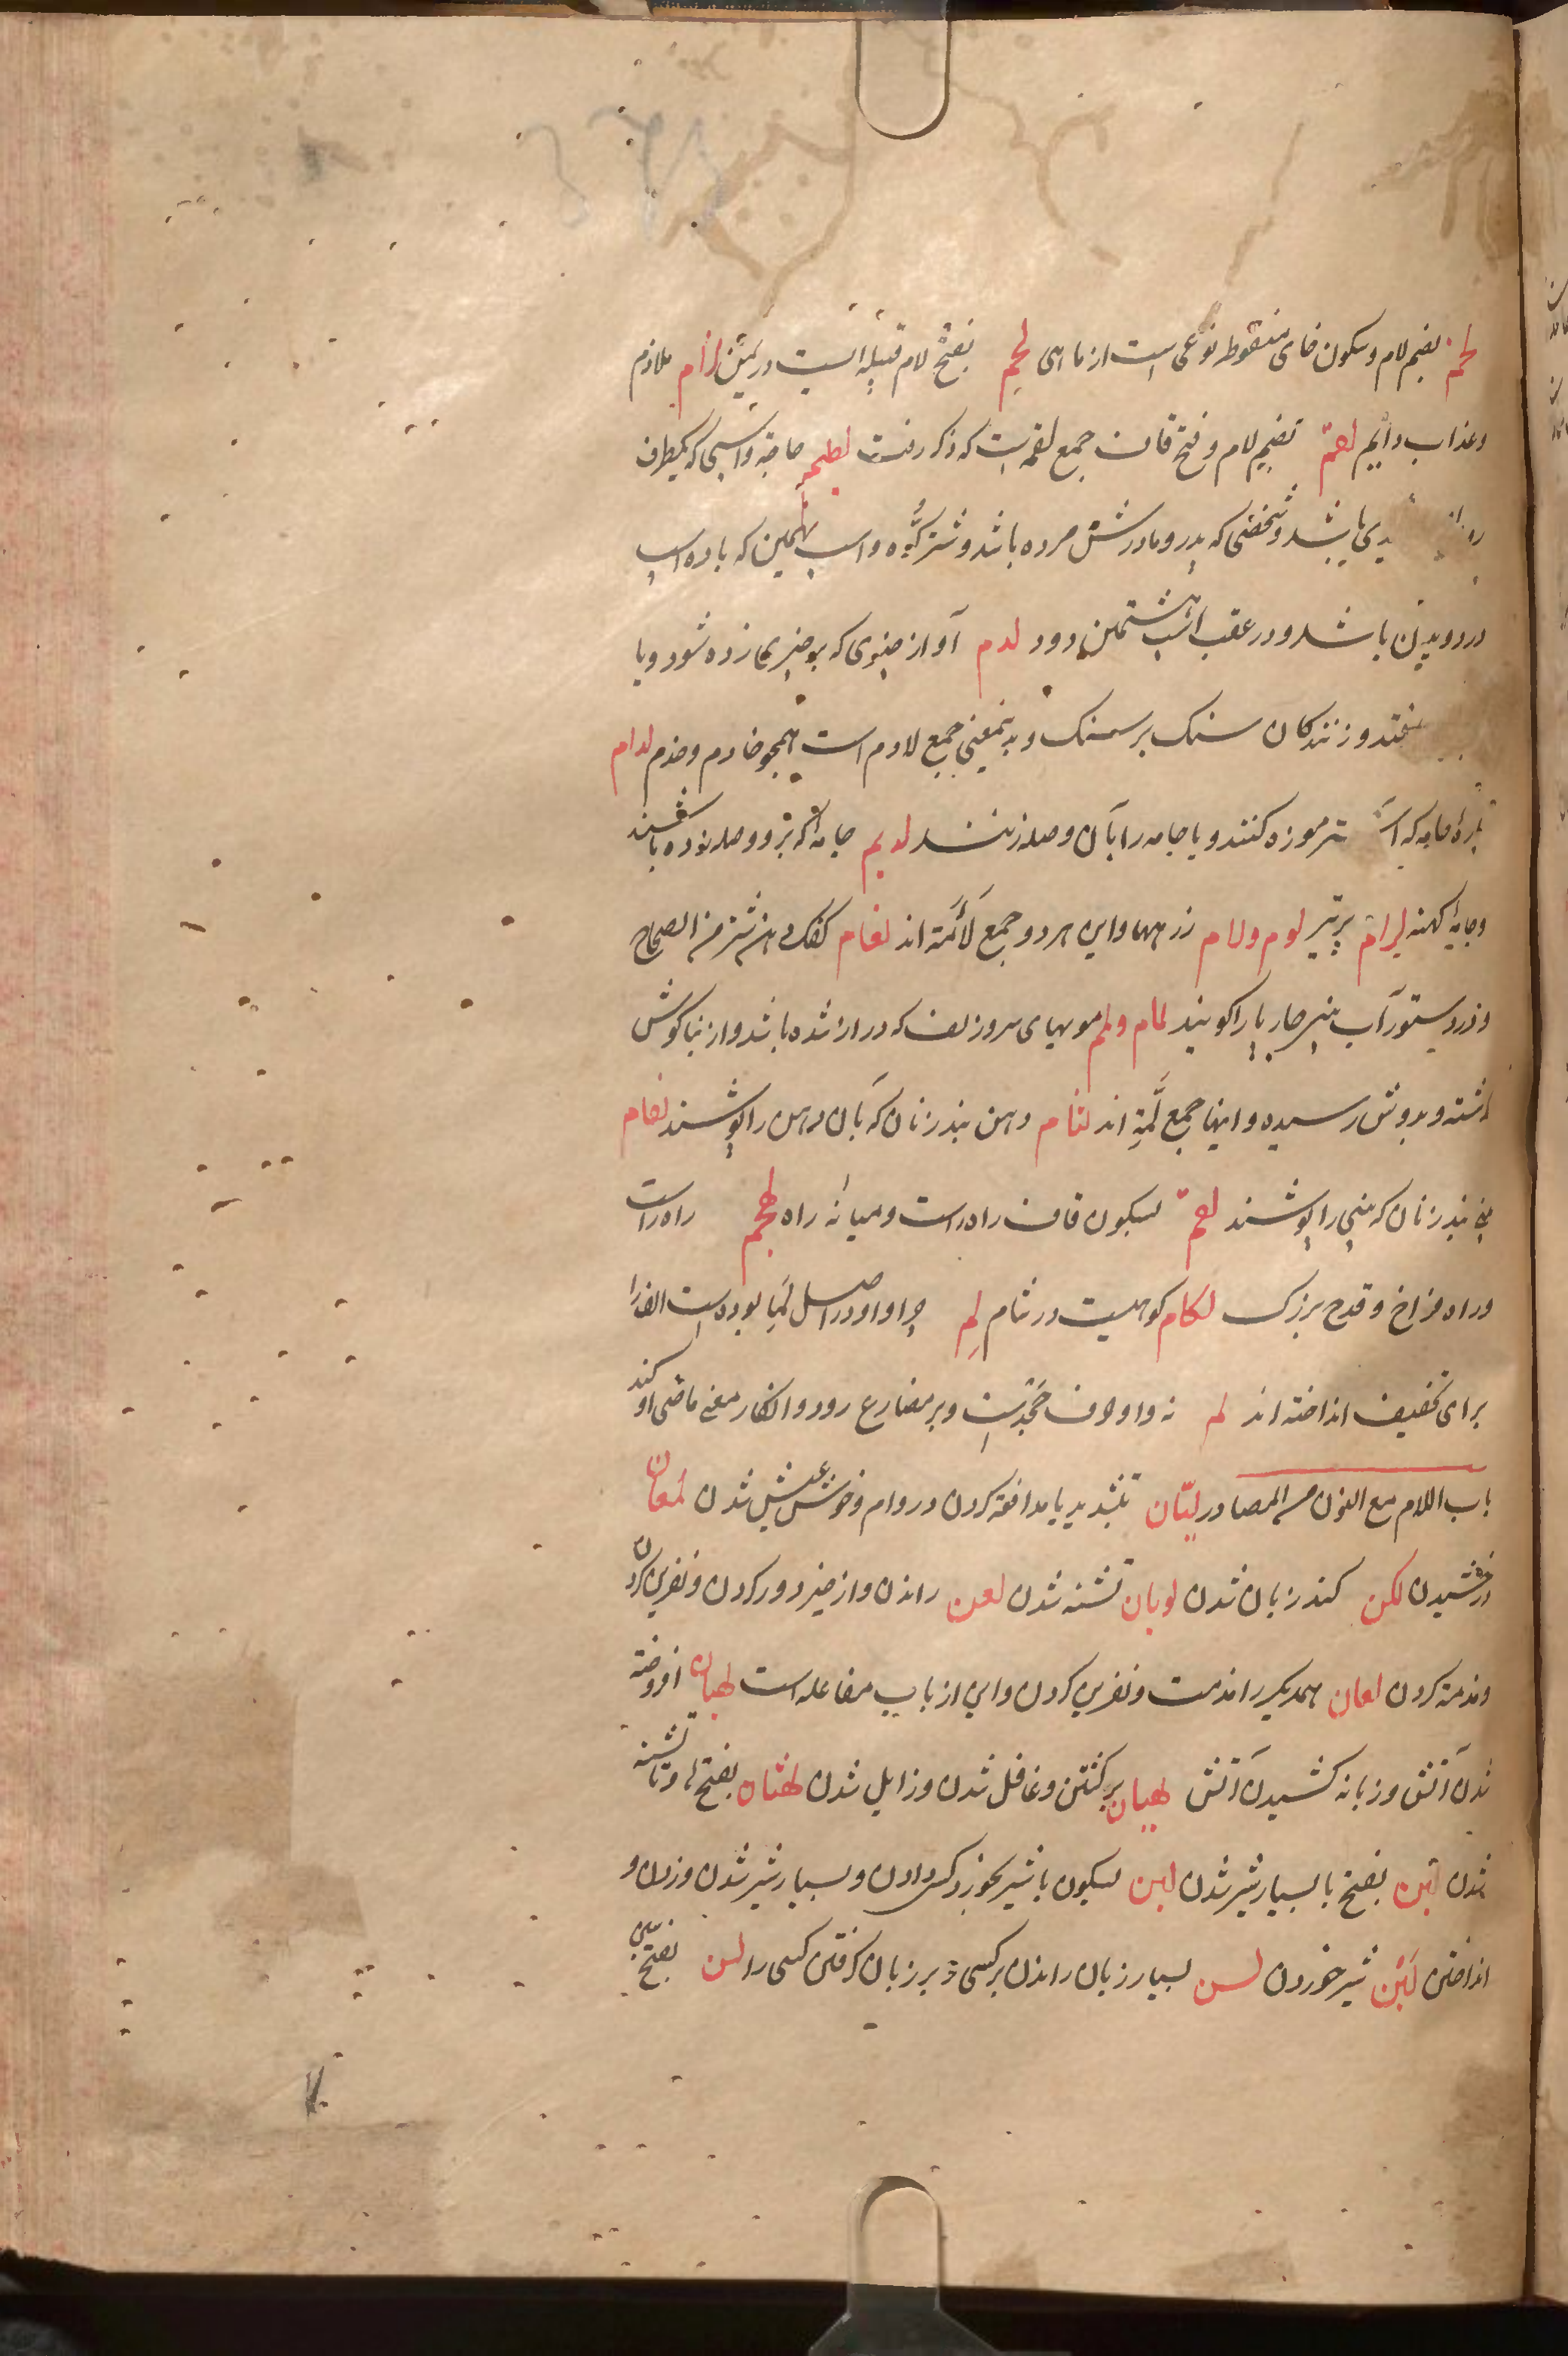 لخم بضم لام و سکون خای منقوطه نوعی است از ماهی لخم بفتح لام قبیله ایست در یمن لزام ملازم
و عذاب دایم لقم بضم لام و فتح قاف جمع لقمه است که ذکر رفت لطیم و اسبی که یکطرف
باشد و شخصی که پدر و مادرش مرده باشد و شتر کره و اسب نهمین که با ده اسب
در دویدن باشد و در عقب اسب هشتمین دود لدم آواز چیزی که بر چیزی زده شود و یا
بیفتد و زنندکان سنک بر سنک و بدینمعنی جمع لادم است همچو خادم و خدم لدام
پاره جامه که موزه کنند و یا جامه را بآن وصله زنند لدیم جامه که برو وصله زده باشند
و جامه کهنه لوم و لام زرهها و این هر دو جمع لأمة اند لغام کفک دهن شتر من الصحاح
و در دستور آب بینی را کویند لمام و لمم مویهای سر و زلف که دراز شده باشد و از بناکوش
کذشته و بدوش رسیده و اینها جمع لمة اند لثام دهن بند زنان که بآن دهن را پوشند لفام
بینی بند زنان که بینی را پوشند لقم بسکون قاف راه راست و میانه راه لهجم راه راست
و راه فراخ و قدح بزرک لکام کوهیست در شام لم چرا و او در اصل لما بوده است الف را
برای تخفیف انداخته اند لم نه و او حرف جحدست و بر مضارع رود و انکار معنی ماضی او کند
باب اللام مع النون من المصادر لیّان بتشدید یا مدافعه کردن در وام و خوش عیش شدن لمعان
درخشیدن لکن کند زبان شدن لوبان تشنه شدن لعن راندن و از خیر دور کردن و نفرین کردن
و مذمة کردن لعان همدیکر را مذمت و نفرین کردن و این از باب مفاعله است لهبان افروخته
شدن آتش و زبانه کشیدن آتش لهیان برکشتن و غافل شدن و زایل شدن لهثان بفتح ها تشنه
شدن لبن بفتح با بسیار شیر شدن لبن بسکون با شیر بخورد کسی دادن و بسیار شیر شدن و زدن و
انداختن لبن شیر خوردن لسن بسیار زبان راندن بر کسی و بر زبان کرفتن کسی را لسن بفتح سین